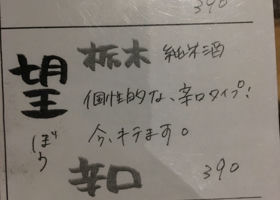 390
望
ぼう
栃木 純米酒
個性的な、辛口タイプ!
今、キテます。
辛口
390